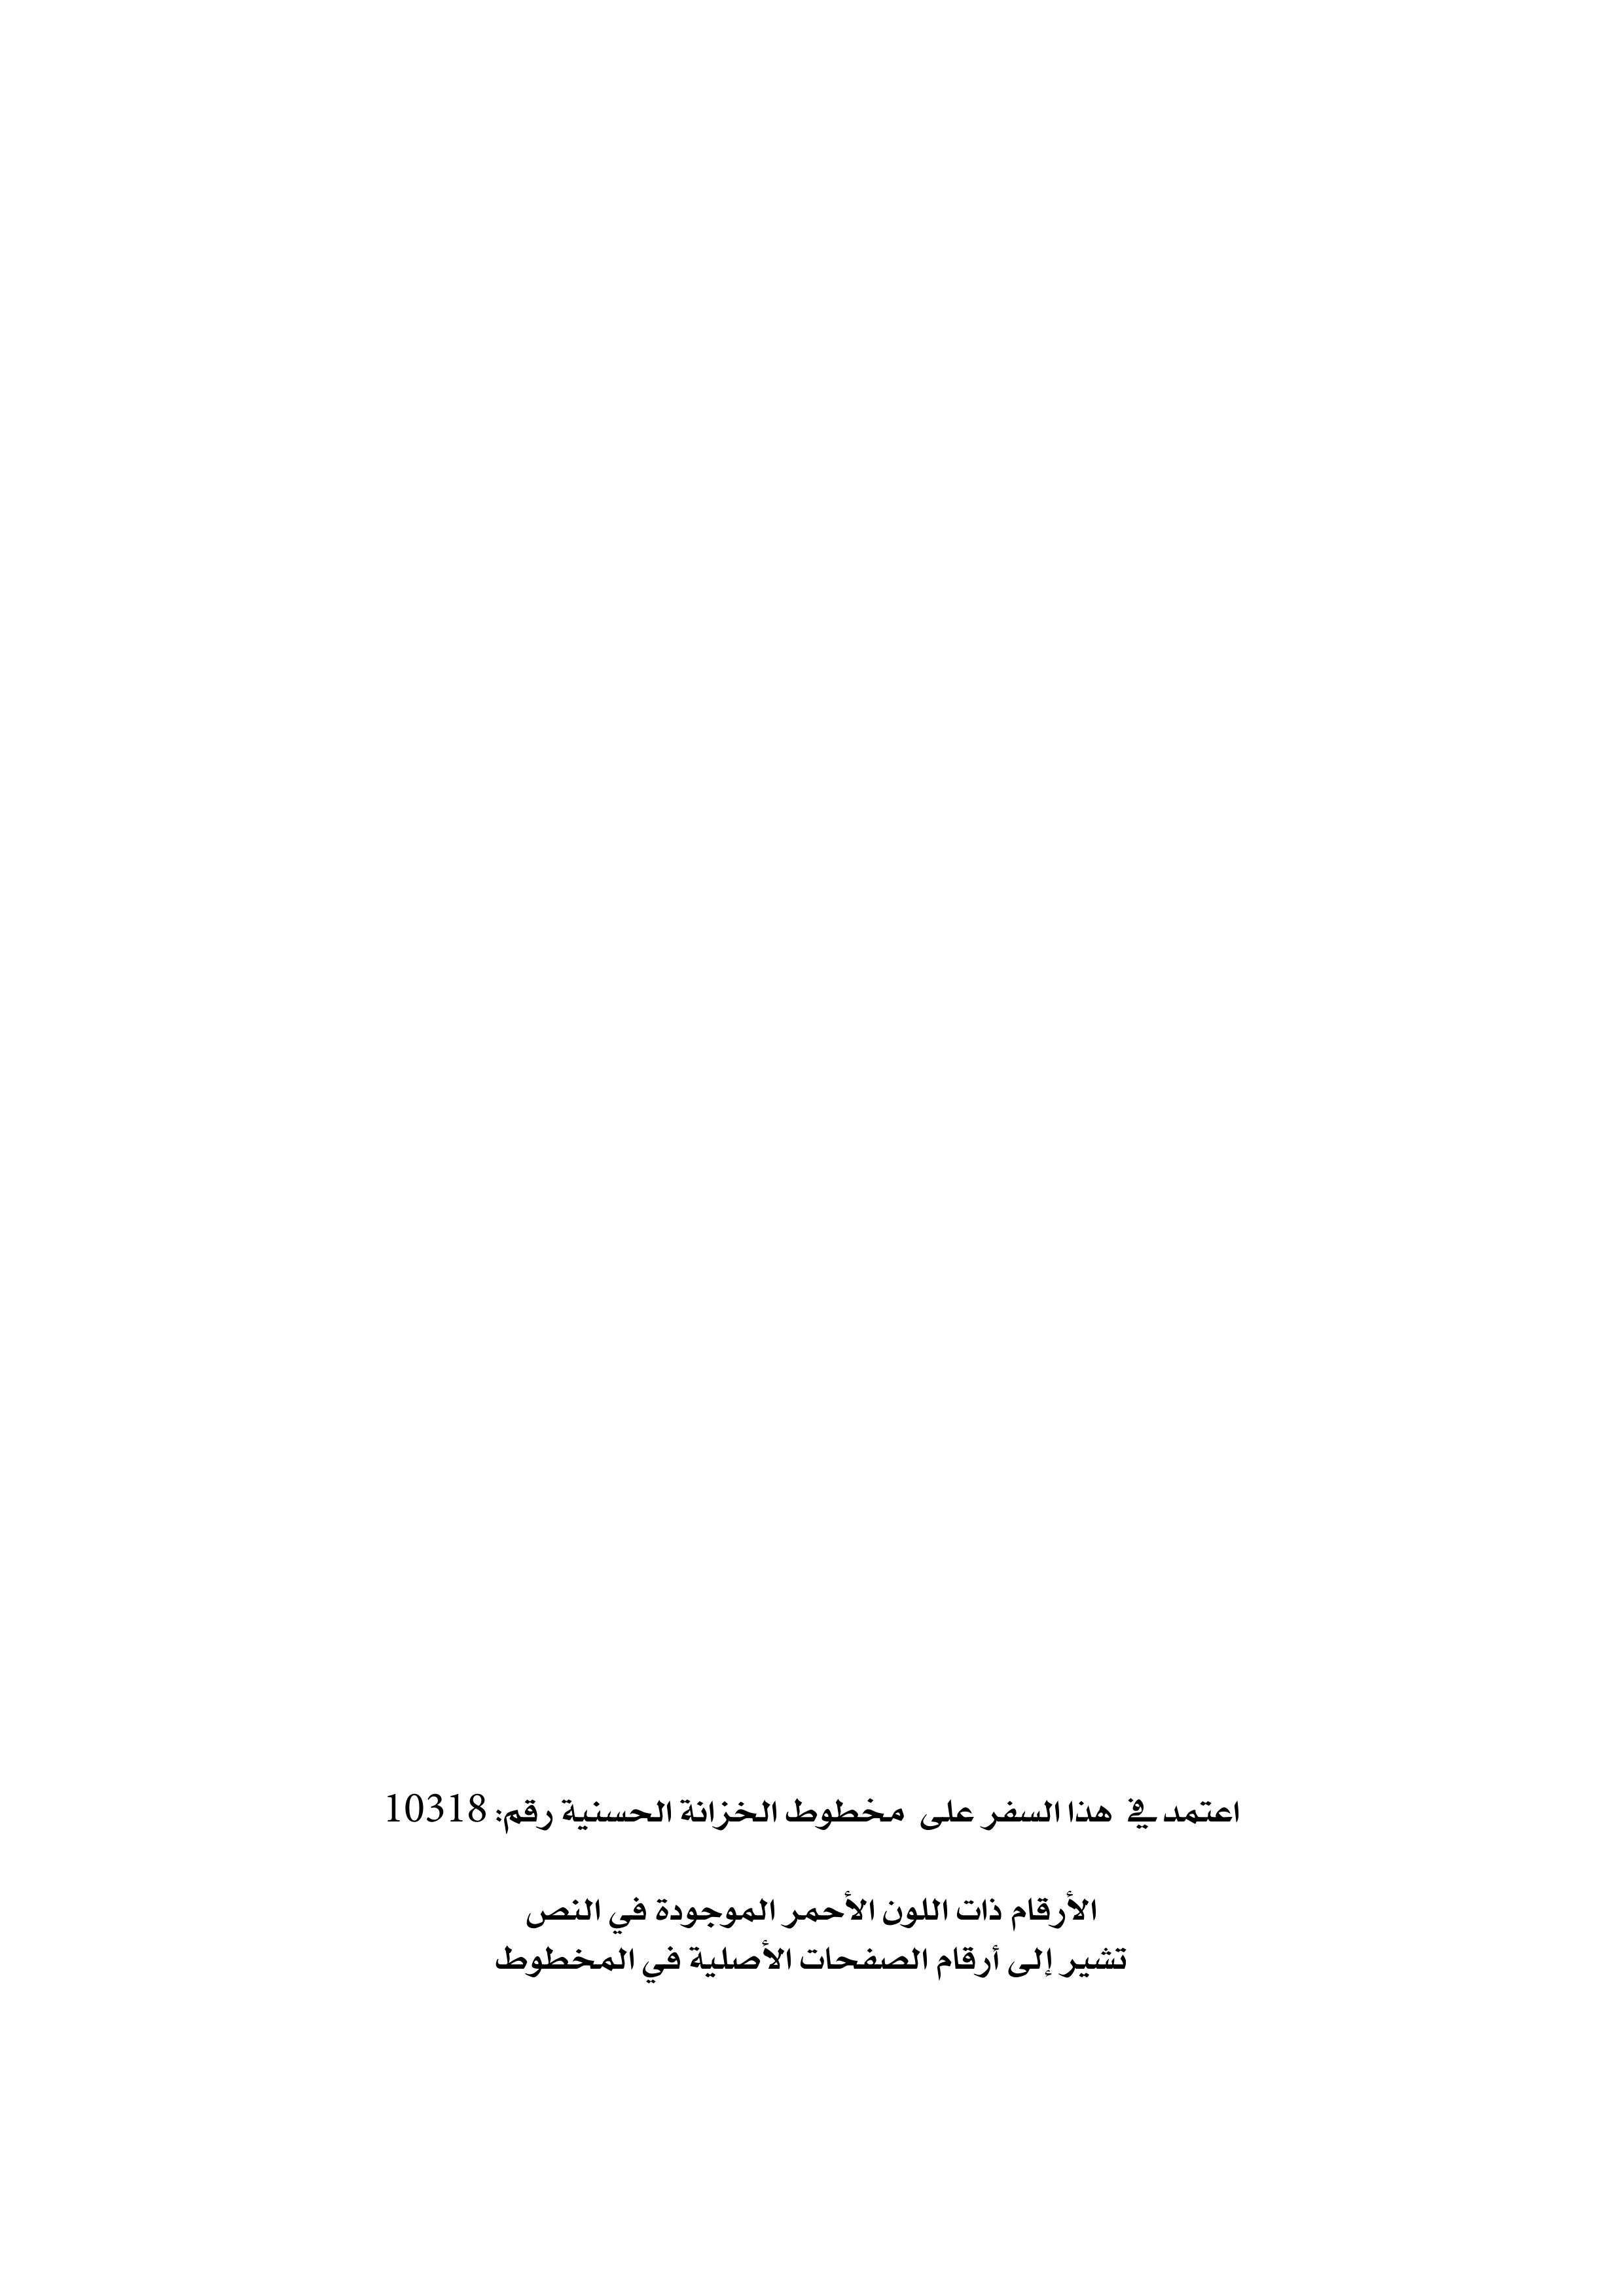 اعتمد في هذا السفر على مخطوط الخزانة الحسنية رقم: 10318
الأرقام ذات اللون الأحمر الموجودة في النص
تشير إلى أرقام الصفحات الأصلية في المخطوط